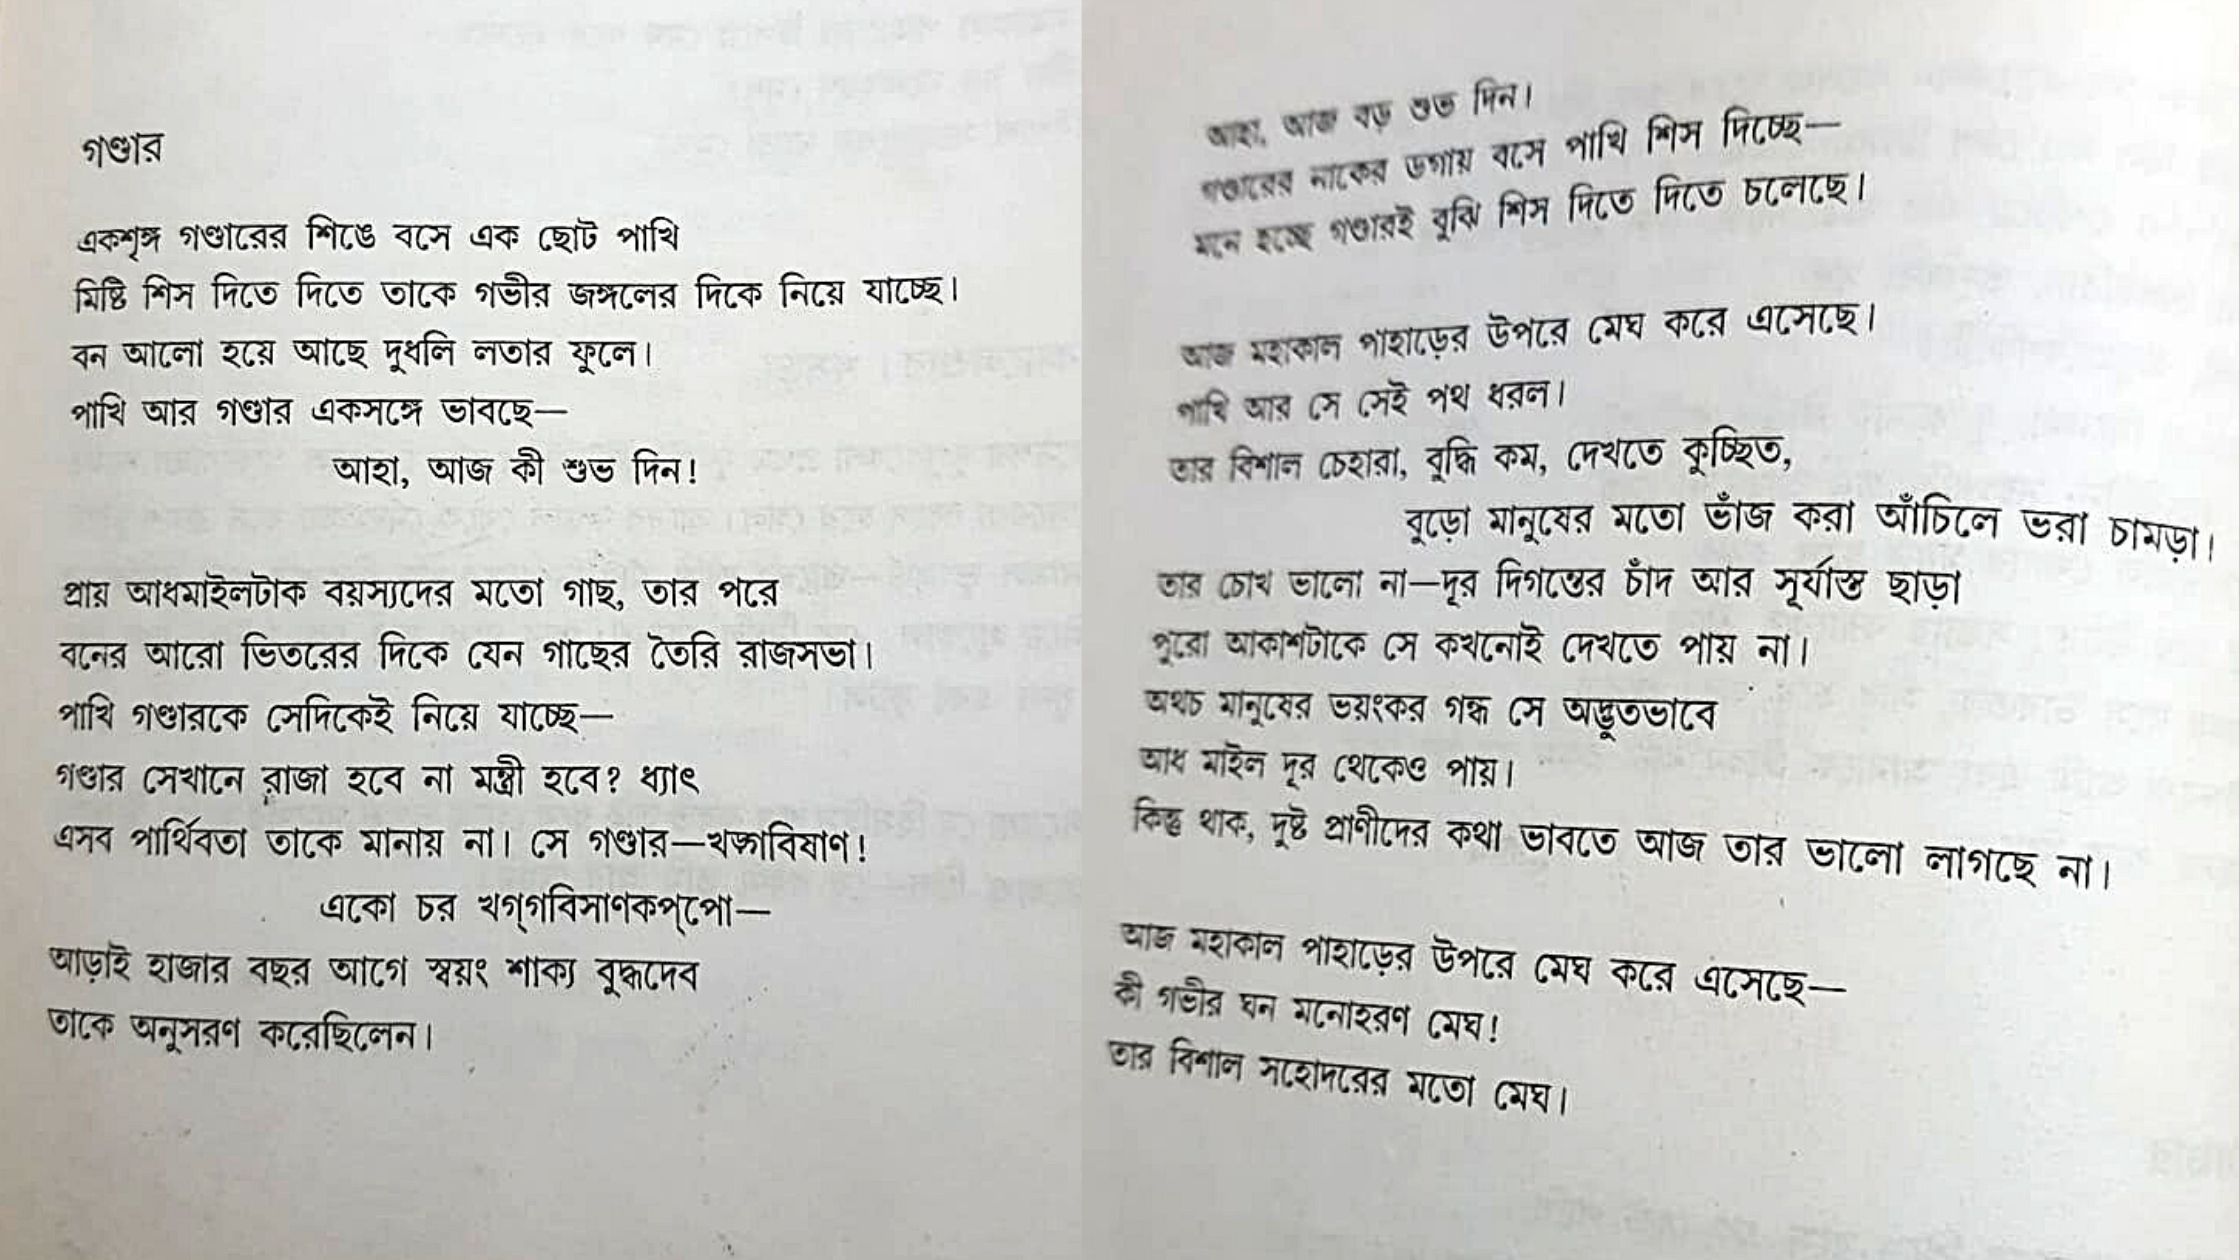 গণ্ডার
একশৃঙ্গ গণ্ডারের শিঙে বসে এক ছোট পাখি
মিষ্টি শিস দিতে দিতে তাকে গভীর জঙ্গলের দিকে নিয়ে যাচ্ছে।
বন আলো হয়ে আছে দুধলি লতার ফুলে।
পাখি আর গণ্ডার একসঙ্গে ভাবছে—
আহা, আজ কী শুভ দিন!
প্রায় আধমাইলটাক বয়স্যদের মতো গাছ, তার পরে
বনের আরো ভিতরের দিকে যেন গাছের তৈরি রাজসভা।
পাখি গণ্ডারকে সেদিকেই নিয়ে যাচ্ছে—
গণ্ডার সেখানে রাজা হবে না মন্ত্রী হবে? ধ্যাৎ
এসব পার্থিবতা তাকে মানায় না। সে গণ্ডার—খড়্গবিষাণ!
একো চর খগ্‌গবিসাণকপ্‌পো—
আড়াই হাজার বছর আগে স্বয়ং শাক্য বুদ্ধদেব
তাকে অনুসরণ করেছিলেন।
আহা, আজ বড় শুভ দিন।
গণ্ডারের নাকের ডগায় বসে পাখি শিস দিচ্ছে—
মনে হচ্ছে গণ্ডারই বুঝি শিস দিতে দিতে চলেছে।
আজ মহাকাল পাহাড়ের উপরে মেঘ করে এসেছে।
পাখি আর সে সেই পথ ধরল।
তার বিশাল চেহারা, বুদ্ধি কম, দেখতে কুচ্ছিত,
বুড়ো মানুষের মতো ভাঁজ করা আঁচিলে ভরা চামড়া।
তার চোখ ভালো না—দূর দিগন্তের চাঁদ আর সূর্যাস্ত ছাড়া
পুরো আকাশটাকে সে কখনোই দেখতে পায় না।
অথচ মানুষের ভয়ংকর গন্ধ সে অদ্ভুতভাবে
আধ মাইল দূর থেকেও পায়।
কিন্তু থাক, দুষ্ট প্রাণীদের কথা ভাবতে আজ তার ভালো লাগছে না।
আজ মহাকাল পাহাড়ের উপরে মেঘ করে এসেছে—
কী গভীর ঘন মনোহরণ মেঘ!
তার বিশাল সহোদরের মতো মেঘ।